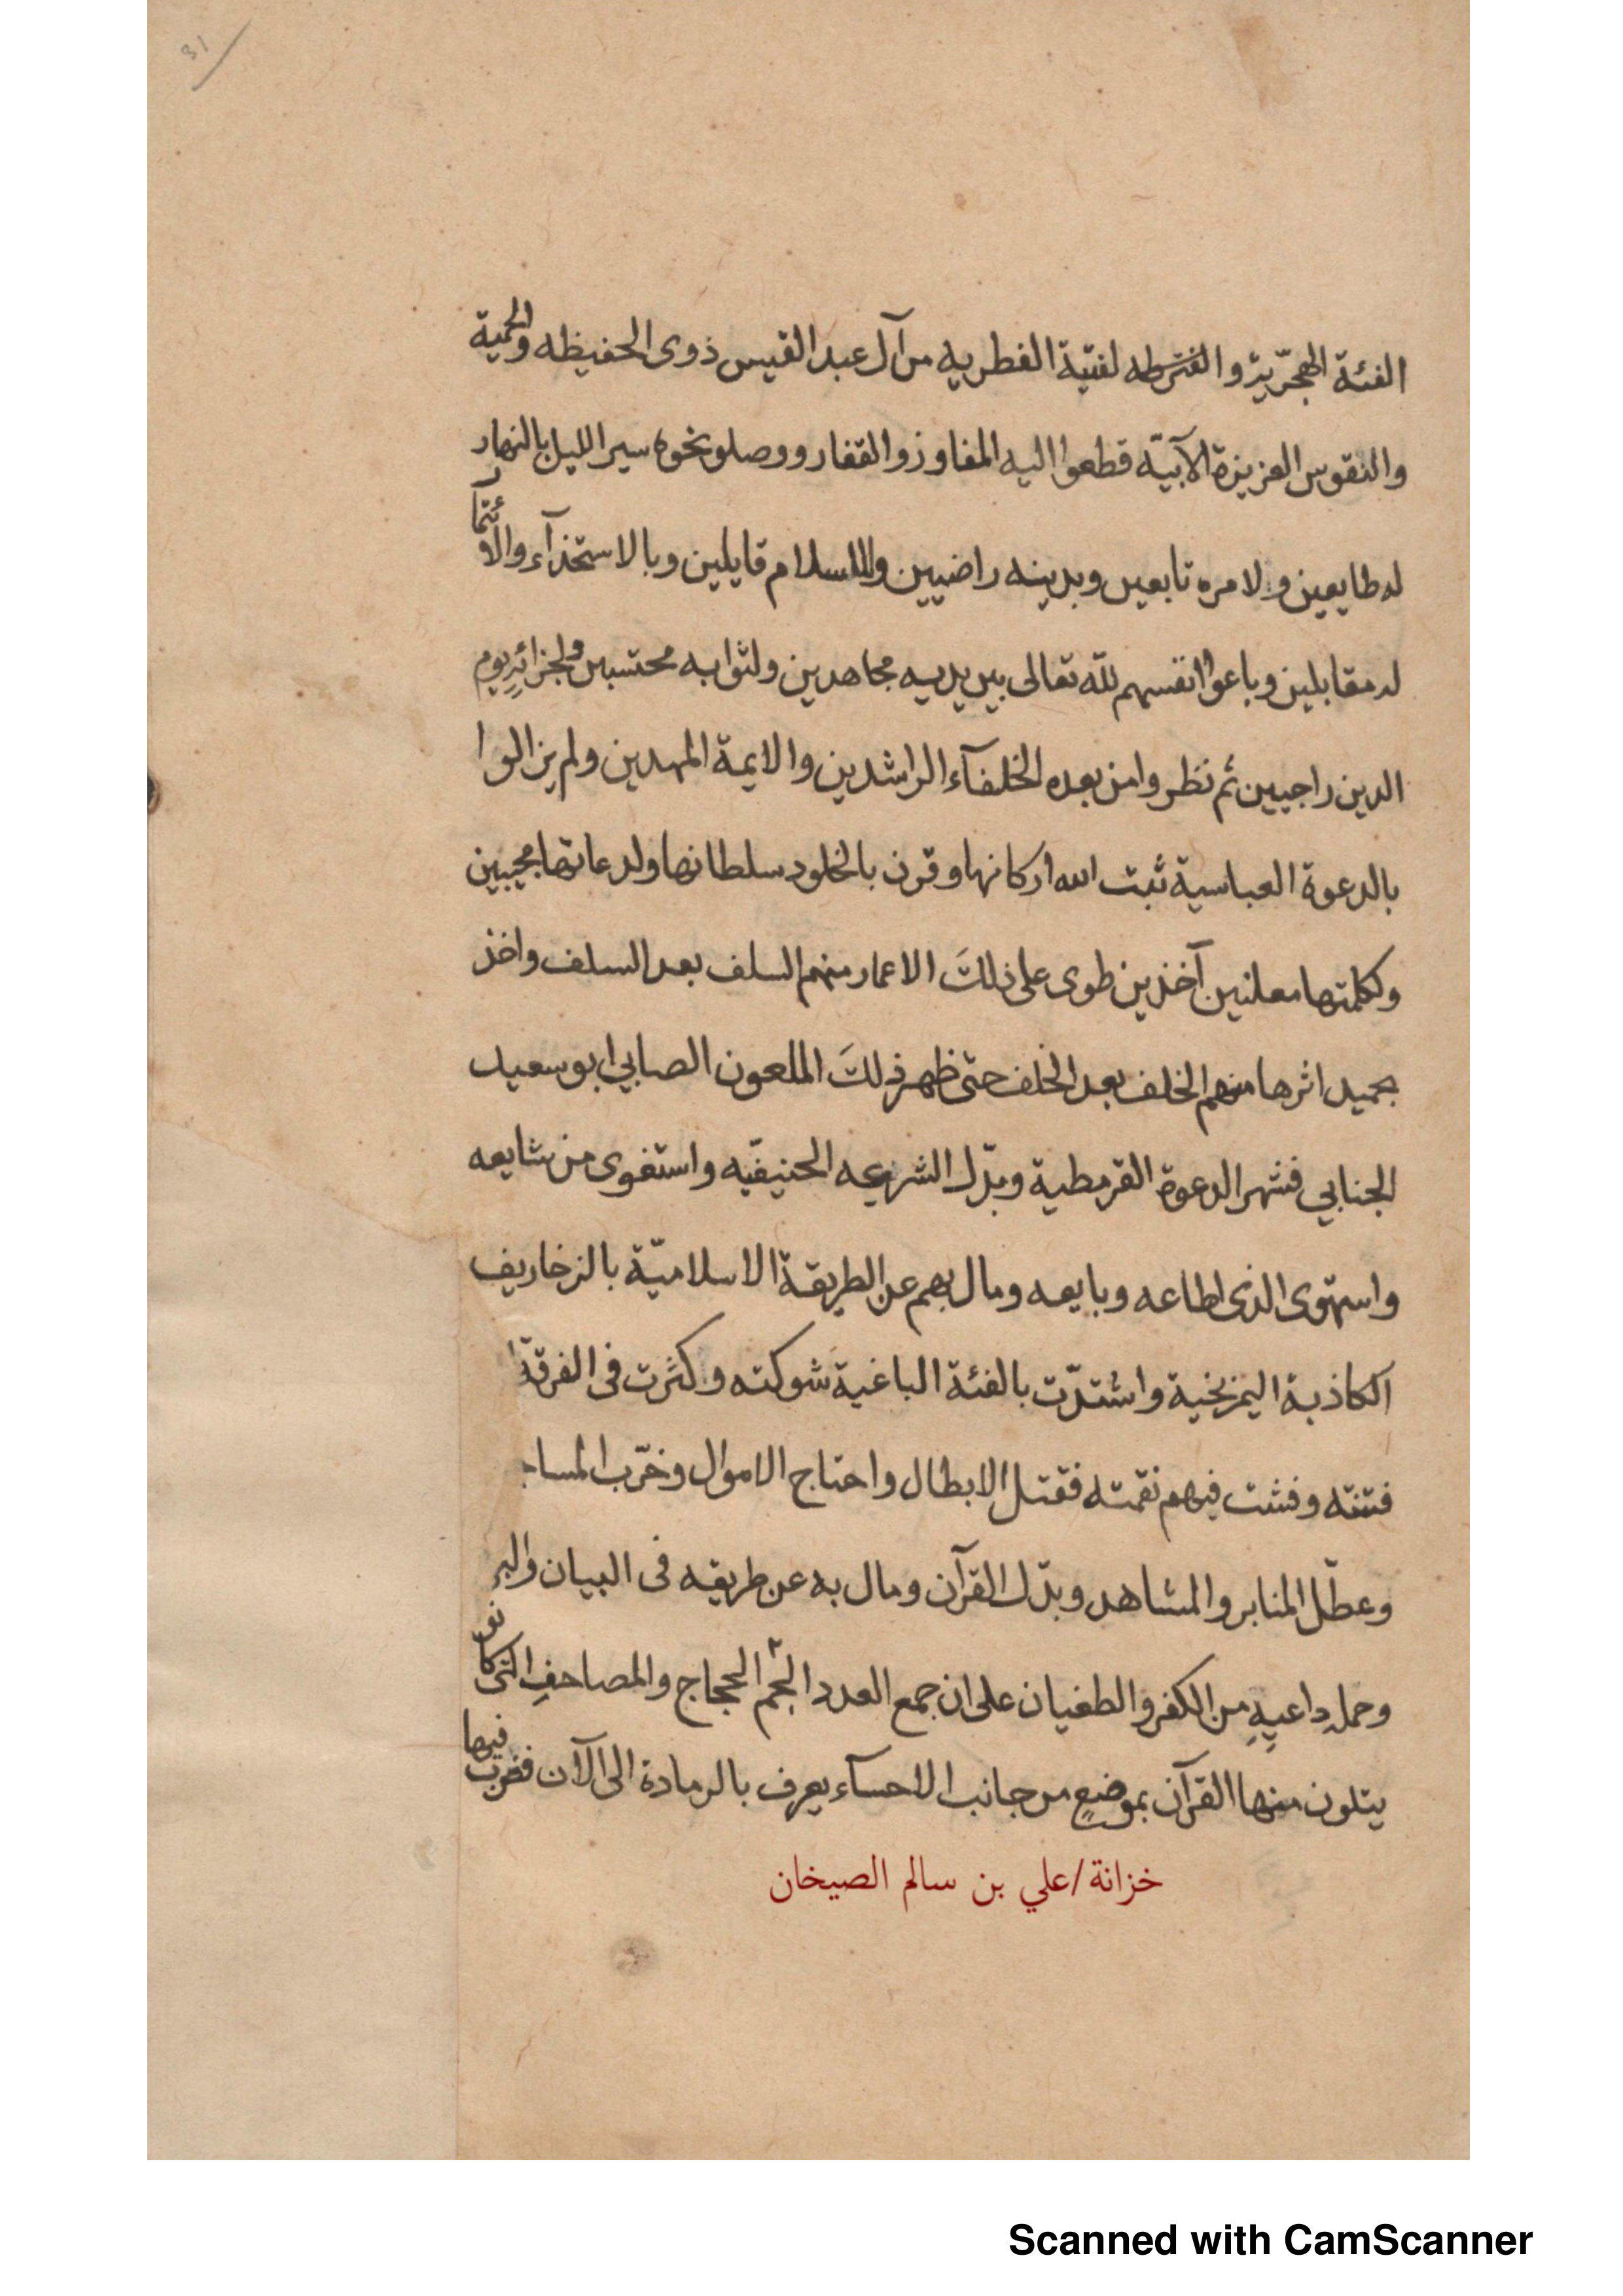 31
الفئة الهجريّة و لفتية الفطريه من آل عبد القيس ذوى الحفيظه والحمية
والنفوس العزيزة الآبيّه قطعوا اليه المفاوز والقفار ووصلو نحوه سير الليل بالنهار
له طايعين ولامره تابعين وبدينه راضيين وللاسلام قايلين وبالاستخذآء والائتمار
له مقابلين وباعوا انفسهم لله تعالى بين يديه مجاهدين ولثوابه محتسبين ولجزائه يوم
الدين راجيين ثم نظروا من بعده الخلفآء الراشدين والايمة المهدين ولم يزالوا
بالدعوة العباسية ثبت الله اركانها وقرن بالخلود سلطانها ولدعاتها مجيبين
وكلمتها معلنين آخذين طوى على ذلكَ الاعمار منهم السلف بعد السلف واخذ
بحميد اثرها منهم الخلف بعد الخلف حتى ظهر ذلكَ الملعون الصابي ابو سعيد
الجنابي فشهر الدعوة القرمطية وبدّل الشريعه الحنيفيّه واستغوى من شايعه
واستهوى الذى اطاعه وبايعه ومال بهم عن الطريقة الاسلاميّة بالزخاريف
الكاذبة واشتدّت بالفئة الباغية شوكته وكثرت فى الفرقة
فتنته وفشت فيهم نقمته فقتل الابطال واحتاج الاموال وخرّب المساجد
وعطّل المنابر والمشاهد وبدّل القرآن ومال به عن طريقه فى البيان والبر
وحمله داعيه من الكفر والطغيان على ان جمع العدد الجم الحجاج والمصاحف التى كانو
يتلون منها القرآن بموضعٍ من جانب الاحسآء يعرف بالرمادة الى الآن فضرب فيها
خزانة/علي بن سالم الصيخان
Scanned with CamScanner